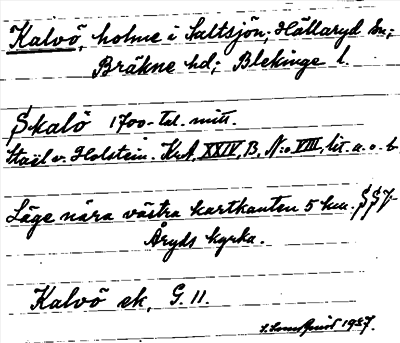 Kalvö, holme i Saltsjön; Hällaryd sn;
Bräkne hd; Blekinge l.
Skalö 1700-tal. mitt.
Staël v. Holstein. KrA, XXIV, B, N:o VIII, lit. a. o. b
Läge nära västra kartkanten 5 km. SSV
Åryds kyrka.
Kalvö ek, G. 11.
1957.